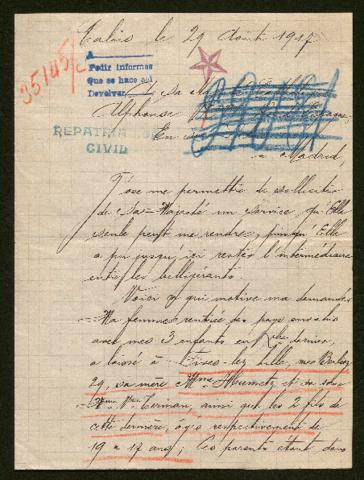 Calais le 29 Août 1917
35145/C
A
Pedir informes
Que se hace así
Devolver
A Sa
Alphonse
REPATRIA
CIVIL
En
à Madrid,
J'ose me permettre de solliciter
de Sa Majesté un service qu'Elle
seule peut me rendre, puisqu'Elle
a pu jusqu'ici rester l'intermédiaire
entre les belligérants.
Voici ce qui motive ma demande.
Ma femme rentrée des pays envahis
avec mes 3 enfants en Xbre dernier,
a laissé à Fives-lez-Lille, rue
29, sa mère Mme et sa
Mme Vve ainsi que les 2 fils de
cette dernière, âgés respectivement de
19 et 17 ans, Ces parents étant dans